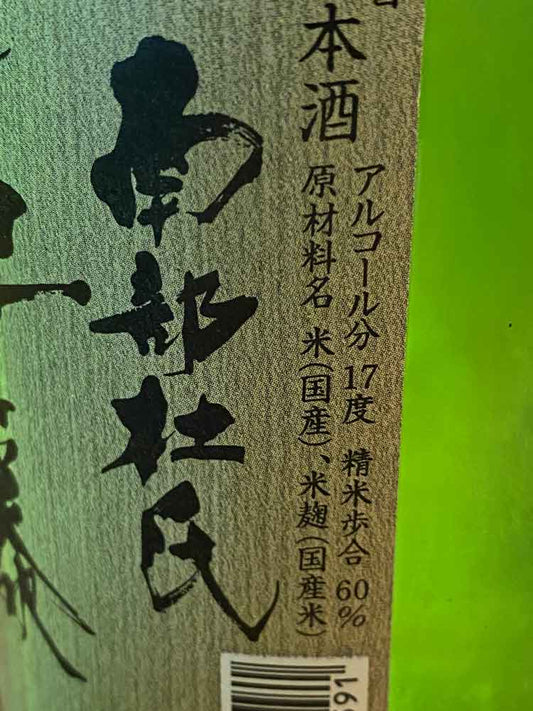 本酒
アルコール分 17度 精米歩合 60%
原材料名 米(国産)、米麹(国産米)
南部杜氏